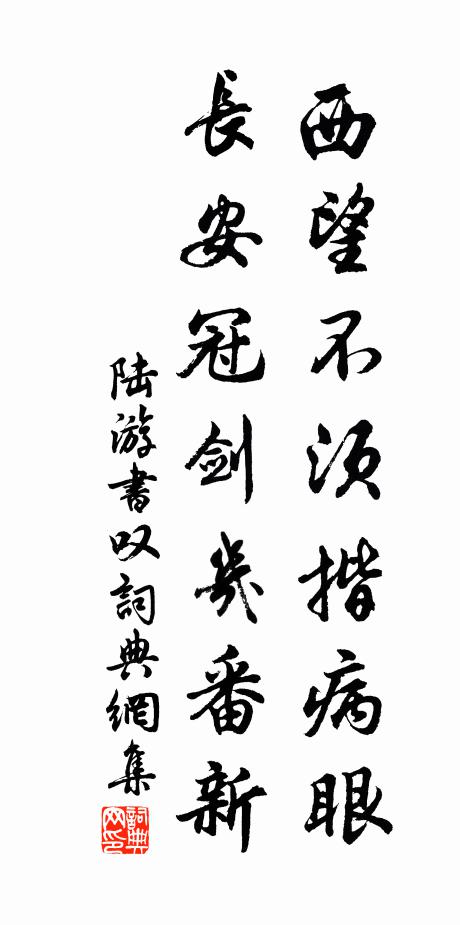 西望不須揩病眼
長安冠劍幾番新
陆游書叹詞典網集
詞典网印